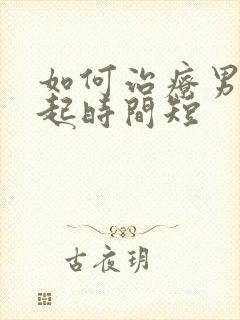 如何治療男
起時間短
古夜玥